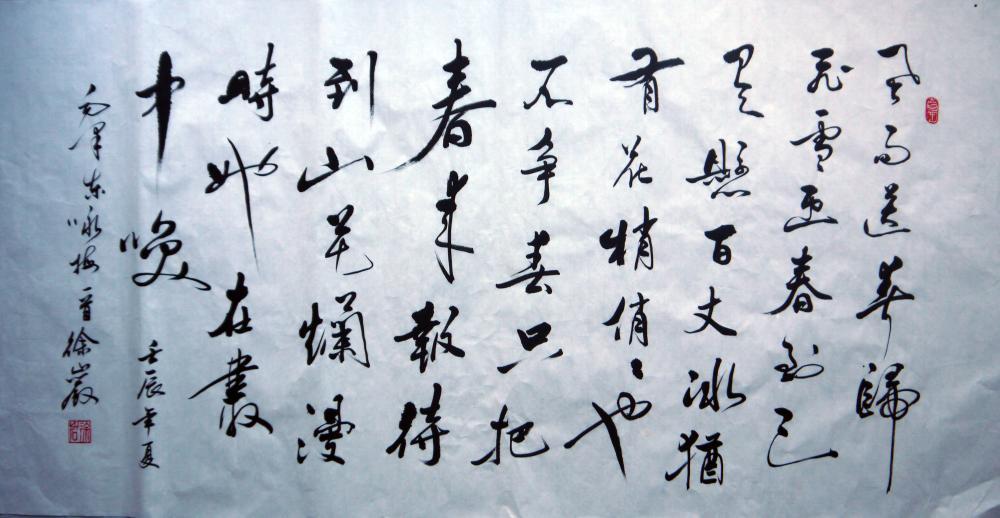 风雨送春歸
飛雪迎春到已
是懸百丈冰猶
有花梢俏々也
不争春只把
春来報待
到山花爛漫
時她在叢
中咲
壬辰年夏
毛泽东咏梅一首徐巖